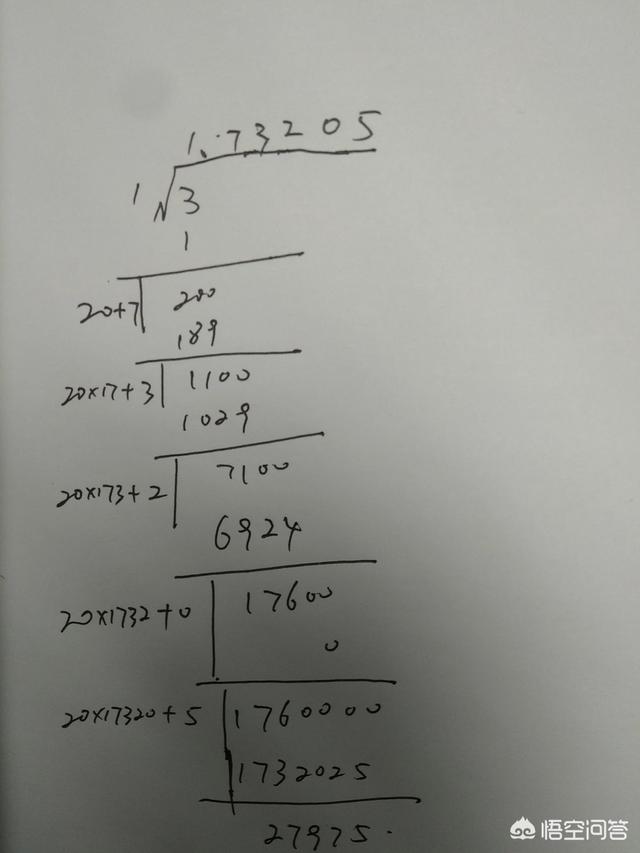 1.73205
1√3
1
20+7 200
189
20×17+3 1100
1029
20×173+2 7100
6924
20×1732+0 17600
0
20×17320+5 1760000
1732025
27975.
悟空问答